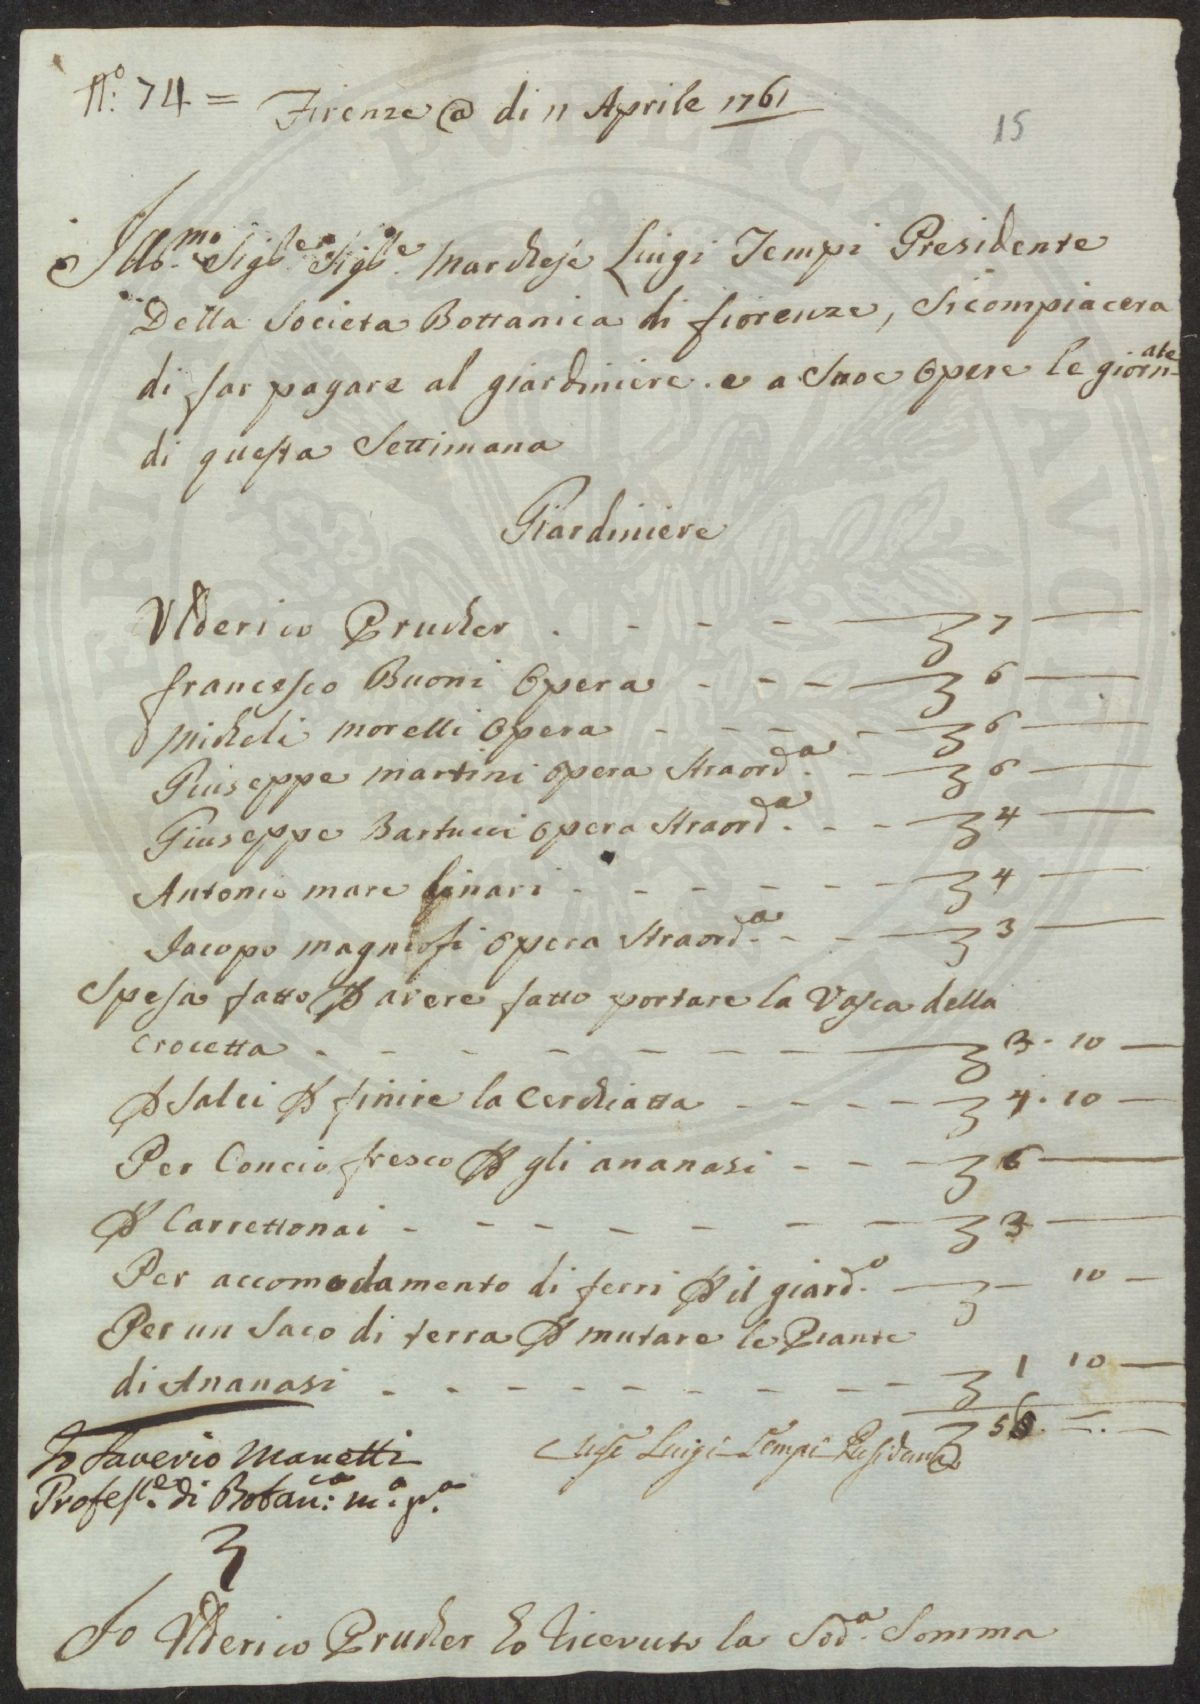 N.o 74 = Firenze @ di 11 Aprile 1761
15
Illmo Sigre Sigre Marchese Luigi Tempi Presidente
Della Societa Bottanica di fiorenze, Sicompiacera
di far pagare al giardiniere e a Suoe Opere le giornate
di questa Settimana
Giardiniere
Ulderico Prucher . - - - £ 7 —
francesco Buoni Opera - - - £ 6 —
Micheli morelli Opera - - - - £ 6 —
Giuseppe martini opera straorda. - £ 6 —
Giuseppe Bartucci opera straorda. - - £ 4 —
Antonio mare - - - - - - £ 4 —
Jacopo opera straorda. - - £ 3 —
Spesa fatto p avere fatto portare la Vasca della
Crocetta - - - - - - - £ 3 . 10 —
p Salci p finire la Cerchiatta - - - - £ 4 . 10 —
Per Concio fresco p gli ananasi - - - £ 6 —
p Carrettonai - - - - - - - £ 3 —
Per accomodamento di ferri p il giardo. — £ — 10 —
Per un Saco di terra p mutare le Piante
di Ananasi - - - - - - - - - £ 1 10 —
£ 56. —. —
Io Saverio Manetti
Luigi Tempi Presidente
Profesre. di Botanca: mo. pa.
Io Ulderico Prucher ho ricevuto la Soda. Somma
PVBLICA